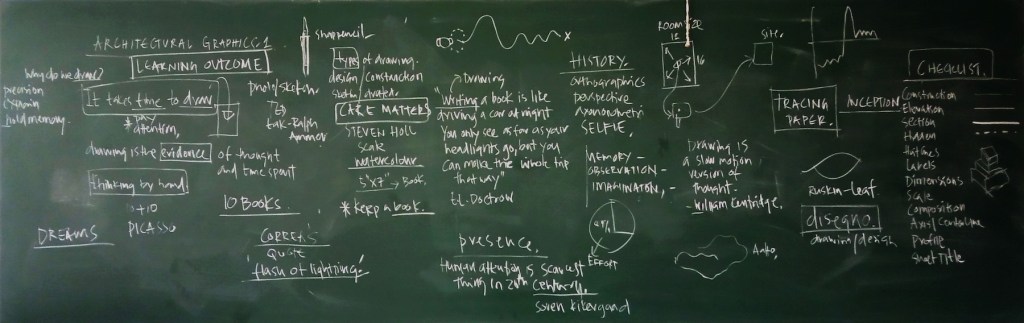 ARCHITECTURAL GRAPHICS 1
LEARNING OUTCOME
Why do we draw?
precision
hold memory.
It takes time to draw.
* pay attention,
drawing is the evidence of thought
and time spent
thinking by hand.
10+10
DREAMS
PICASSO
sharp pencil
photo/sketch
talk-Ralph
10 BOOKS.
CORRETTS
QUOTE
"flash of lightning"
types of drawing.
design / construction
CARE MATTERS
STEVEN HOLL
scale
watercolour
5"x7" → Book.
* keep a book.
Drawing
"Writing a book is like
driving a car at night
You only see as far as your
headlights go, but you
can make the whole trip
that way"
E.L-Doctrow
presence.
Human attention is scarcest
thing in 20th Century.
Soren Kikergand
HISTORY.
orthographics
perspective
axonometric
SELFIE.
MEMORY -
OBSERVATION -
IMAGINATION, -
EFFORT
ROOM
12
16
site.
Drawing is
a slow motion
version of
thought.
- William Centridge.
TRACING
PAPER.
INCEPTION
Ruskin-Leaf
disegno.
drawing/design
CHECKLIST.
Construction
Elevation
Section
Hidden
Hatches
Labels
Dimensions
Scale
Composition
Axis/Centreline
Profile
Sheet Title